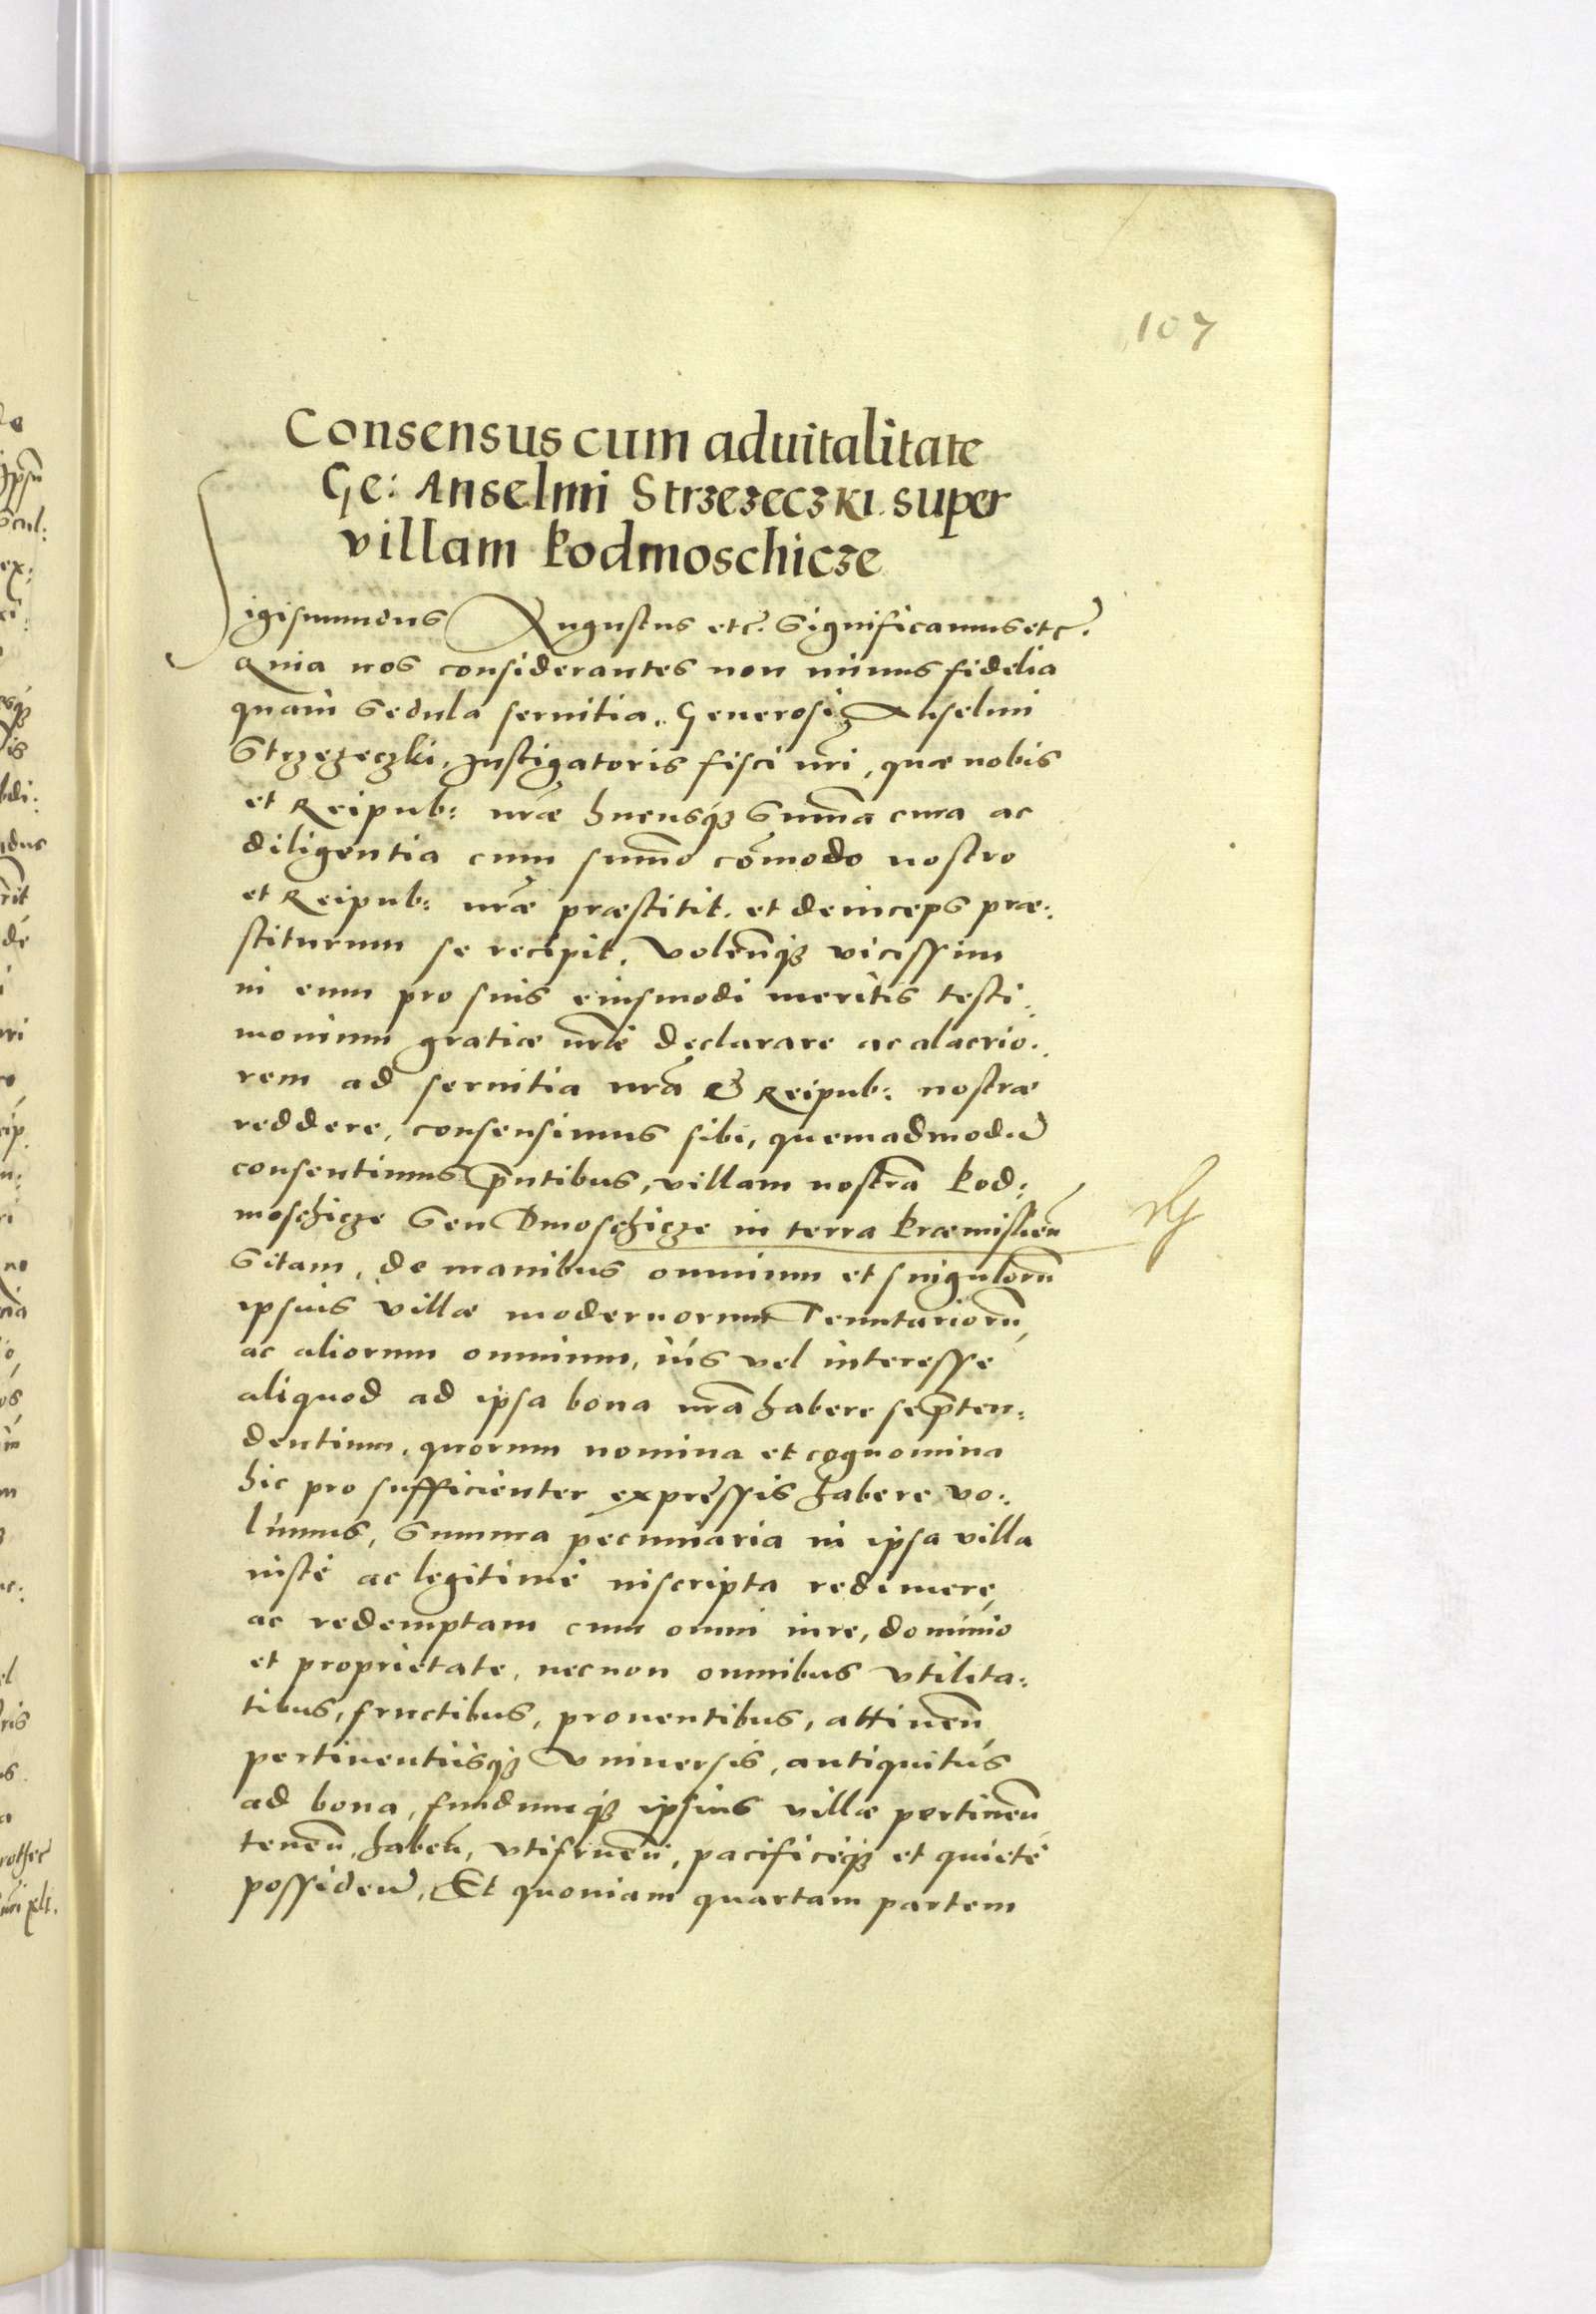 107
Consensus cum aduitalitate
Ge: Anselmi Strzezeczki super
villam Kodmoschicze
Sigismundus Augustus etc. Significamus etc.
Quia nos considerantes non minus fidelia
quam sedula seruitia Generosi Anselmi
Strzezeczki, Instigatoris fisci nr̃i, quæ nobis
et Reipub: nr̃æ hucusq; sum̃a cura ac
diligentia cum sum̃o com̃odo nostro
et Reipub: nr̃æ præstitit, et deinceps præ:
stiturum se recipit, Volen̄q; vicissim
in eum pro suis eiusmodi meritis testi:
monium gratiæ nr̃æ declarare ac alacrio:
rem ad seruitia nr̃a & Reipub: nostræ
reddere, consensimus sibi, quemadmodū
consentimus p̃ntibus, villam nostrã Kod:
moschicze seu Dmoschicze in terra Præmislien̄
sitam, de manibus omnium et singulorū
ipsius villæ modernorum Tenutariorū,
ac aliorum omnium, ius vel interesse
aliquod ad ipsa bona nr̃a habere se p̃ten:
dentium, quorum nomina et cognomina
hic pro sufficienter expressis habere vo:
lumus, Summa pecuniaria in ipsa villa
iustè ac legitimè inscripta redimere,
ac redemptam cum omni iure, dominio
et proprietate, necnon omnibus vtilita:
tibus, fructibus, prouentibus, attinen̄,
pertinentiisq; Vniuersis, antiquitus
ad bona, fundumq; ipsius villæ pertinen̄
tenen̄, haben̄, vtifruen̄, pacificèq; et quietè
possiden̄, Et quoniam quartam partem